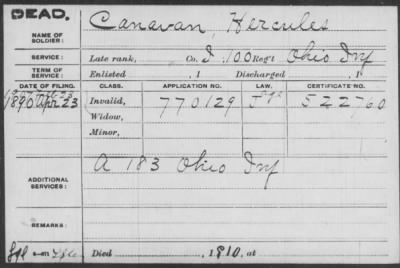 DEAD.
NAME OF SOLDIER: Canavan, Hercules
SERVICE: Late rank, Co. I 100 Reg't Ohio Inf
TERM OF SERVICE: Enlisted , 1 Discharged , 1
DATE OF FILING. CLASS. APPLICATION NO. LAW. CERTIFICATE NO.
1890 Apr 23 Invalid, 770129 522760
Widow,
Minor,
ADDITIONAL SERVICES: A 183 Ohio Inf
REMARKS:
Died , 1910, at